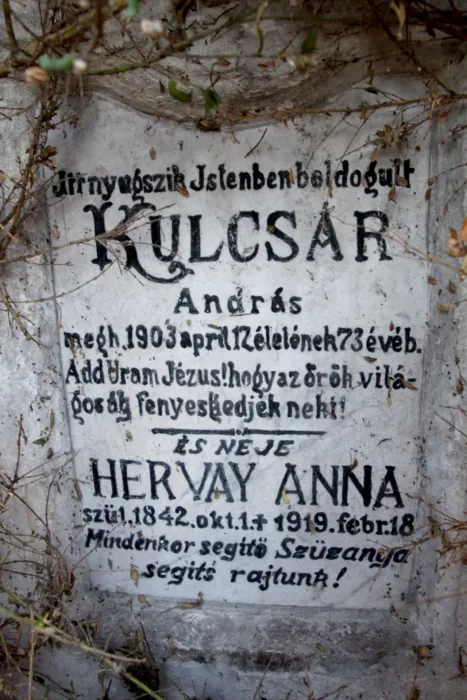 Itt nyugszik Istenben boldogult
KULCSÁR
András
megh. 1903 april 17. életének 73 évéb.
Add Uram Jézus! hogy az örök vilá-
gosság fenyeskedjék neki!
ÉS NEJE
HERVAY ANNA
szül. 1842. okt. 1. + 1919. febr. 18
Mindenkor segitö Szüzanya
segits rajtunk!